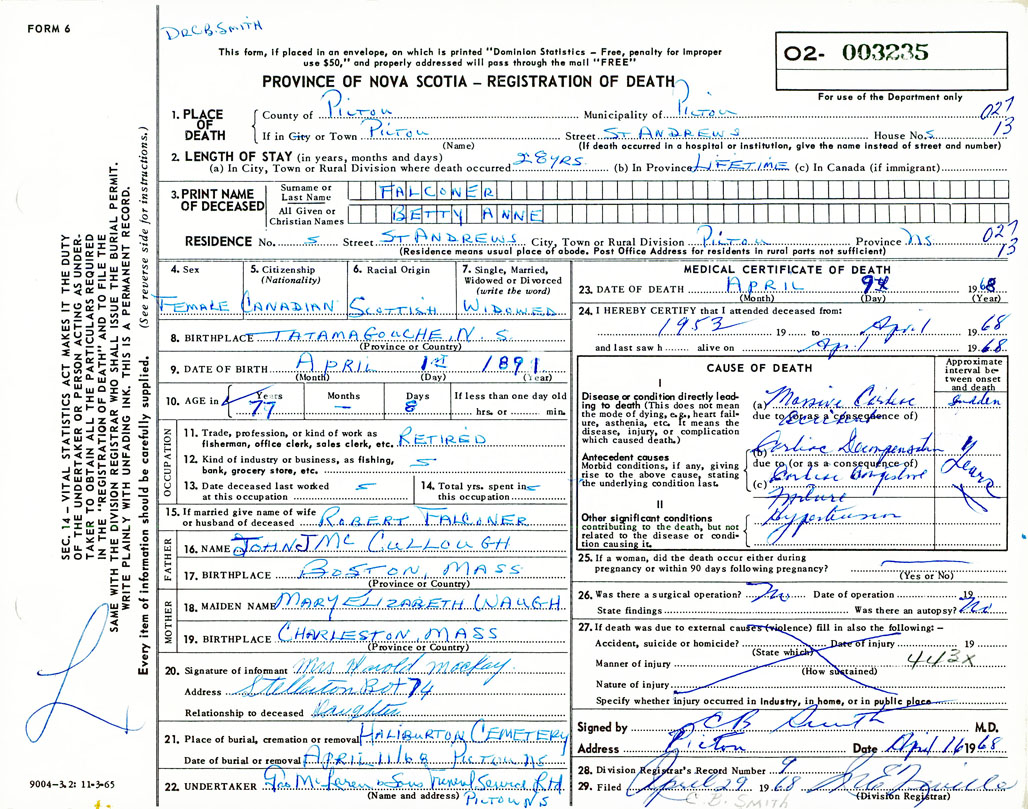 FORM 6
DR C.B. SMITH
This form, if placed in an envelope, on which is printed "Dominion Statistics — Free, penalty for improper
use $50," and properly addressed will pass through the mail "FREE"
O2- 003235
PROVINCE OF NOVA SCOTIA — REGISTRATION OF DEATH
For use of the Department only
1. PLACE OF DEATH
County of PICTOU Municipality of PICTOU 027
If in City or Town PICTOU Street ST ANDREWS House No. S 13
(Name) (If death occurred in a hospital or institution, give the name instead of street and number)
2. LENGTH OF STAY (in years, months and days)
(a) In City, Town or Rural Division where death occurred 28 YRS (b) In Province LIFETIME (c) In Canada (if immigrant)
3. PRINT NAME OF DECEASED
Surname or Last Name FALCONER
All Given or Christian Names BETTY ANNE
RESIDENCE No. S Street ST ANDREWS City, Town or Rural Division PICTOU Province NS 027
(Residence means usual place of abode. Post Office Address for residents in rural parts not sufficient) 13
4. Sex FEMALE
5. Citizenship (Nationality) CANADIAN
6. Racial Origin SCOTTISH
7. Single, Married, Widowed or Divorced (write the word) WIDOWED
8. BIRTHPLACE TATAMAGOUCHE, N. S
(Province or Country)
9. DATE OF BIRTH APRIL 1ST 1891
(Month) (Day) (Year)
10. AGE in Years 77 Months — Days 8 If less than one day old hrs. or min.
OCCUPATION
11. Trade, profession, or kind of work as
fisherman, office clerk, sales clerk, etc. RETIRED
12. Kind of industry or business, as fishing,
bank, grocery store, etc. S
13. Date deceased last worked
at this occupation S
14. Total yrs. spent in
this occupation S
15. If married give name of wife
or husband of deceased ROBERT FALCONER
FATHER
16. NAME JOHN J MC CULLOUGH
17. BIRTHPLACE BOSTON, MASS
(Province or Country)
MOTHER
18. MAIDEN NAME MARY ELIZABETH WAUGH
19. BIRTHPLACE CHARLESTON, MASS
(Province or Country)
20. Signature of informant Mrs. Harold MacKay
Address Stellarton Box 74
Relationship to deceased Daughter
21. Place of burial, cremation or removal HALIBURTON CEMETERY
Date of burial or removal APRIL 11/68 PICTOU NS
22. UNDERTAKER McLaren & Sons Funeral Service
(Name and address) PICTOU NS
MEDICAL CERTIFICATE OF DEATH
23. DATE OF DEATH APRIL 9th 1968
(Month) (Day) (Year)
24. I HEREBY CERTIFY that I attended deceased from:
1953 19 to April 1968
and last saw h alive on April 1968
CAUSE OF DEATH
Approximate interval between onset and death
I
Disease or condition directly leading to death (This does not mean the mode of dying, e.g., heart failure, asthenia, etc. It means the disease, injury, or complication which caused death.)
(a) Massive Cardiac Sudden
due to (or as a consequence of)
Antecedent causes
Morbid conditions, if any, giving rise to the above cause, stating the underlying condition last.
(b) Cardiac Decompensation Years
due to (or as a consequence of)
(c) Congestive
Failure
II
Other significant conditions
contributing to the death, but not related to the disease or condition causing it.
Hypertension
25. If a woman, did the death occur either during
pregnancy or within 90 days following pregnancy?
(Yes or No)
26. Was there a surgical operation? No Date of operation 19
State findings Was there an autopsy? No
27. If death was due to external causes (violence) fill in also the following: —
Accident, suicide or homicide? Date of injury 19
(State which)
Manner of injury 443X
(How sustained)
Nature of injury
Specify whether injury occurred in Industry, in home, or in public place
Signed by CB Smith M.D.
Address Pictou Date April 16 1968
28. Division Registrar's Record Number 9
29. Filed April 29 1968
(Division Registrar)
C.B. SMITH
SEC. 14 — VITAL STATISTICS ACT MAKES IT THE DUTY
OF THE UNDERTAKER OR PERSON ACTING AS UNDER-
TAKER TO OBTAIN ALL THE PARTICULARS REQUIRED
IN THE "REGISTRATION OF DEATH" AND TO FILE THE
SAME WITH THE DIVISION REGISTRAR WHO SHALL ISSUE THE BURIAL PERMIT.
WRITE PLAINLY WITH UNFADING INK. THIS IS A PERMANENT RECORD.
Every item of information should be carefully supplied. (See reverse side for instructions.)
9004-3.2: 11-3-65